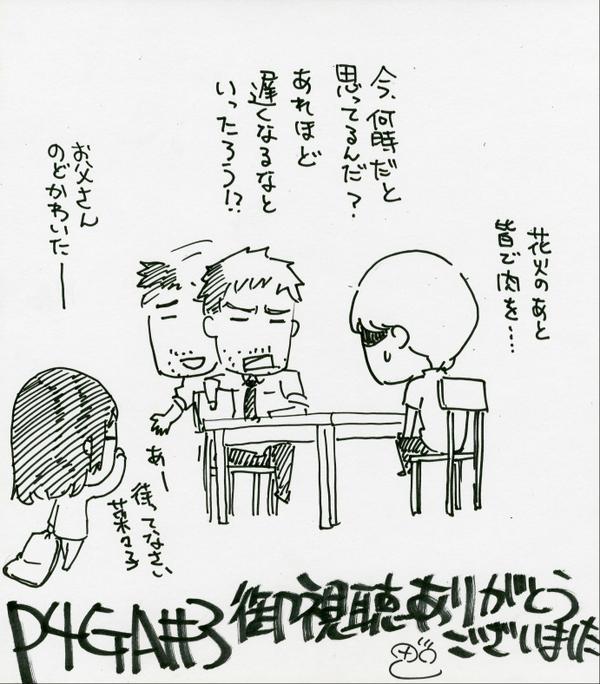 今、何時だと
思ってるんだ？
あれほど
遅くなるなと
いったろう!?
花火のあと
皆で肉を…
お父さん
のどかわいたー
あー
待ってなさい
菜々子
P4GA#3 御視聴ありがとう
ございました